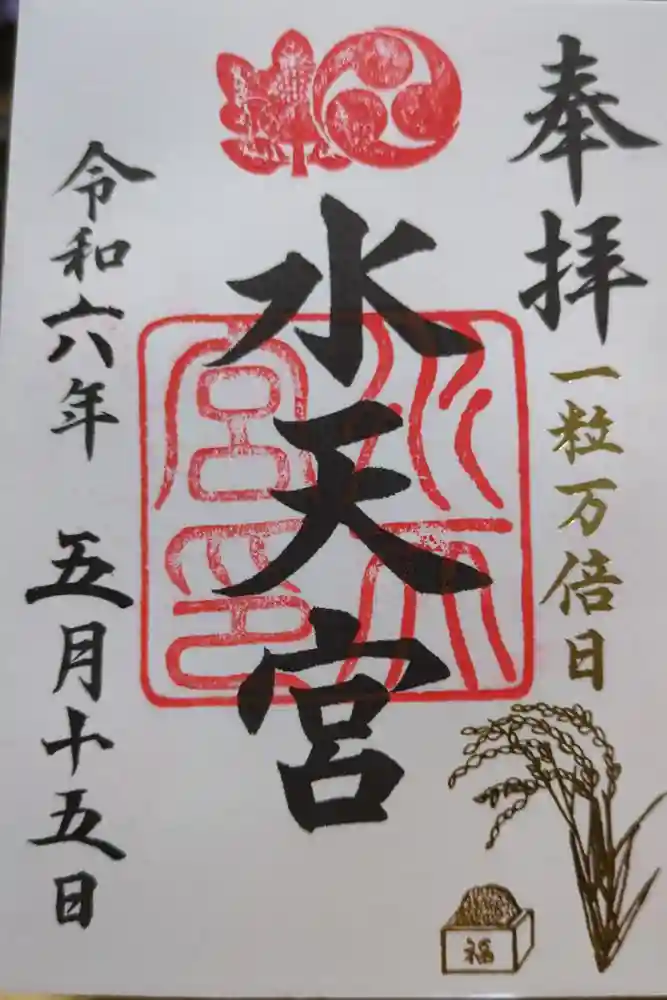 奉拝
一粒万倍日
水天宮
水天宮印
令和六年 五月十五日
福